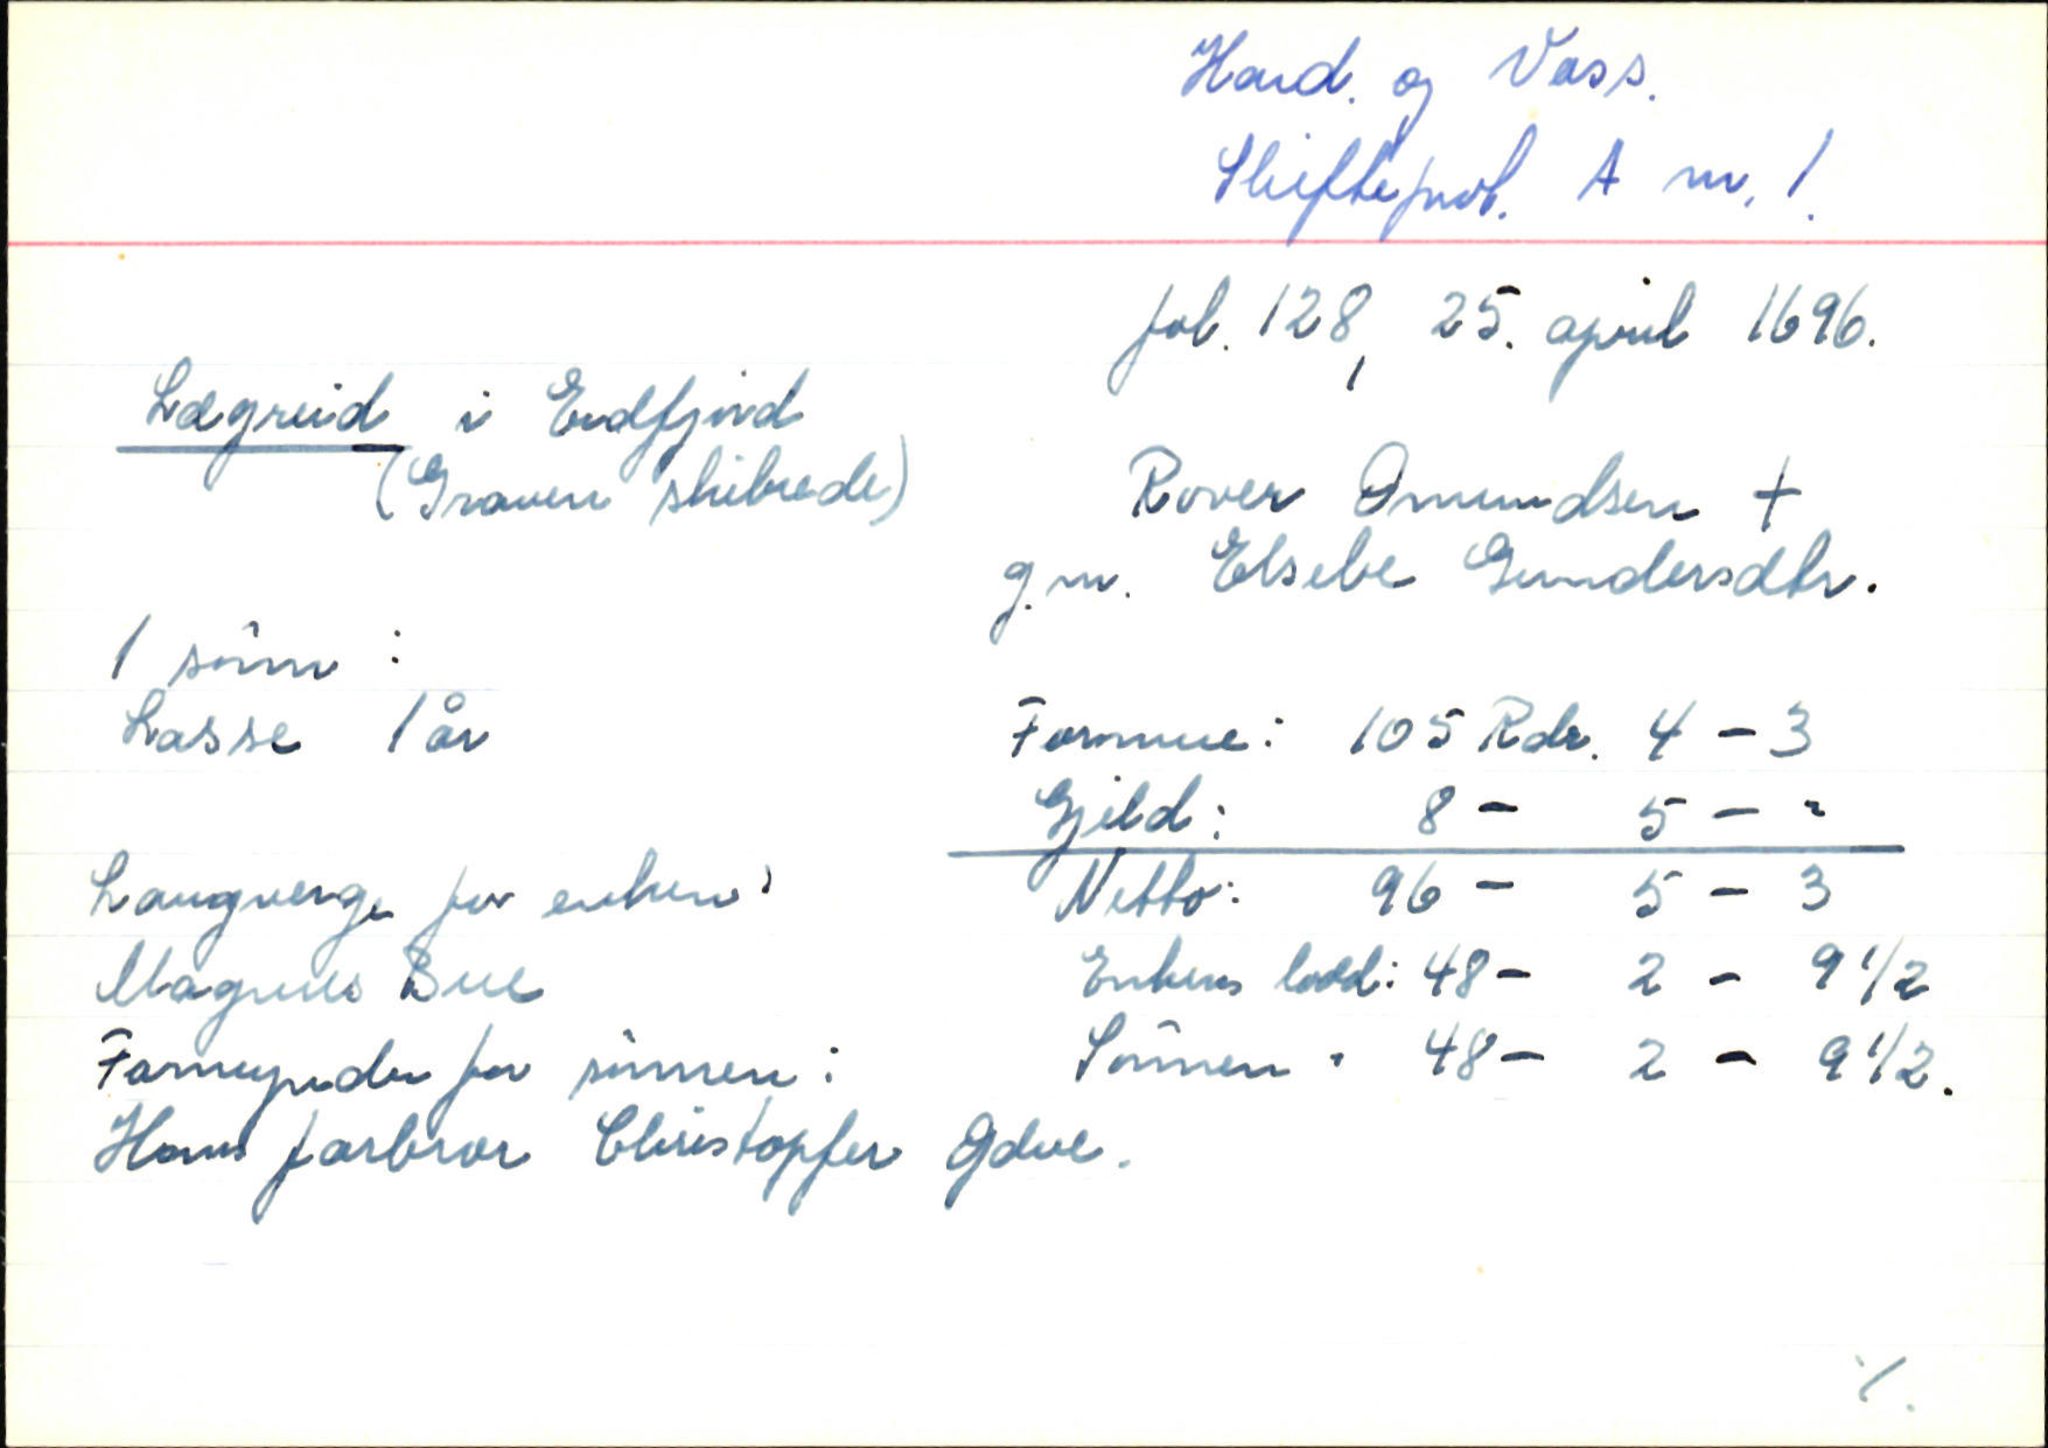 Hard. og Voss.
Skifteprot. A nr. 1.
fol. 128, 25. april 1696.
Lægreid i Eidfjord
(Graven skibrede)
Rover Omundsen +
g.m. Elsebe Gundersdtr.
1 sönn :
Lasse 1 år
Formue: 105 Rdr. 4 - 3
Gjeld: 8 - 5 - "
Netto: 96 - 5 - 3
Enkens lodd: 48 - 2 - 9 1/2
Sönnen " 48 - 2 - 9 1/2.
Laugverge for enken:
Magnus Bue
Formynder for sönnen:
Hans farbror Christopfer
./.